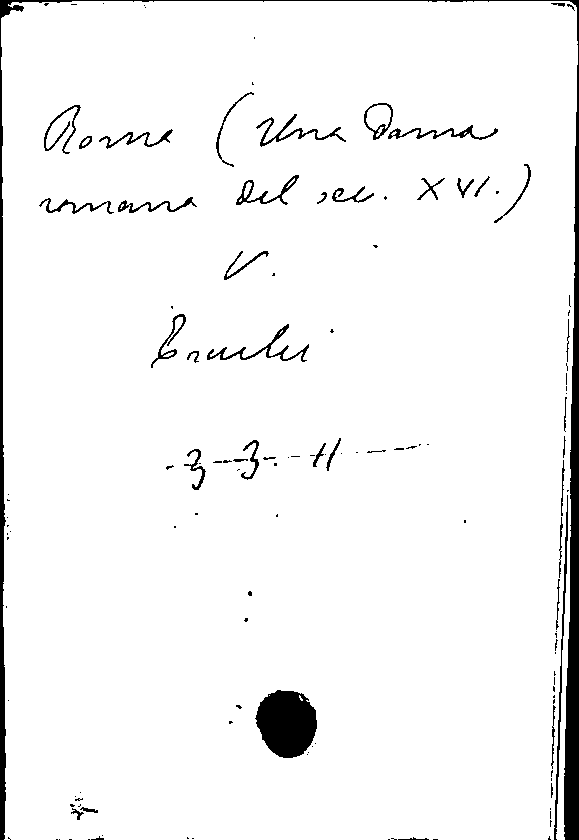 Roma (Una Dama
romana del sec. XVI.)
V.
Ercolei
3-3.-11